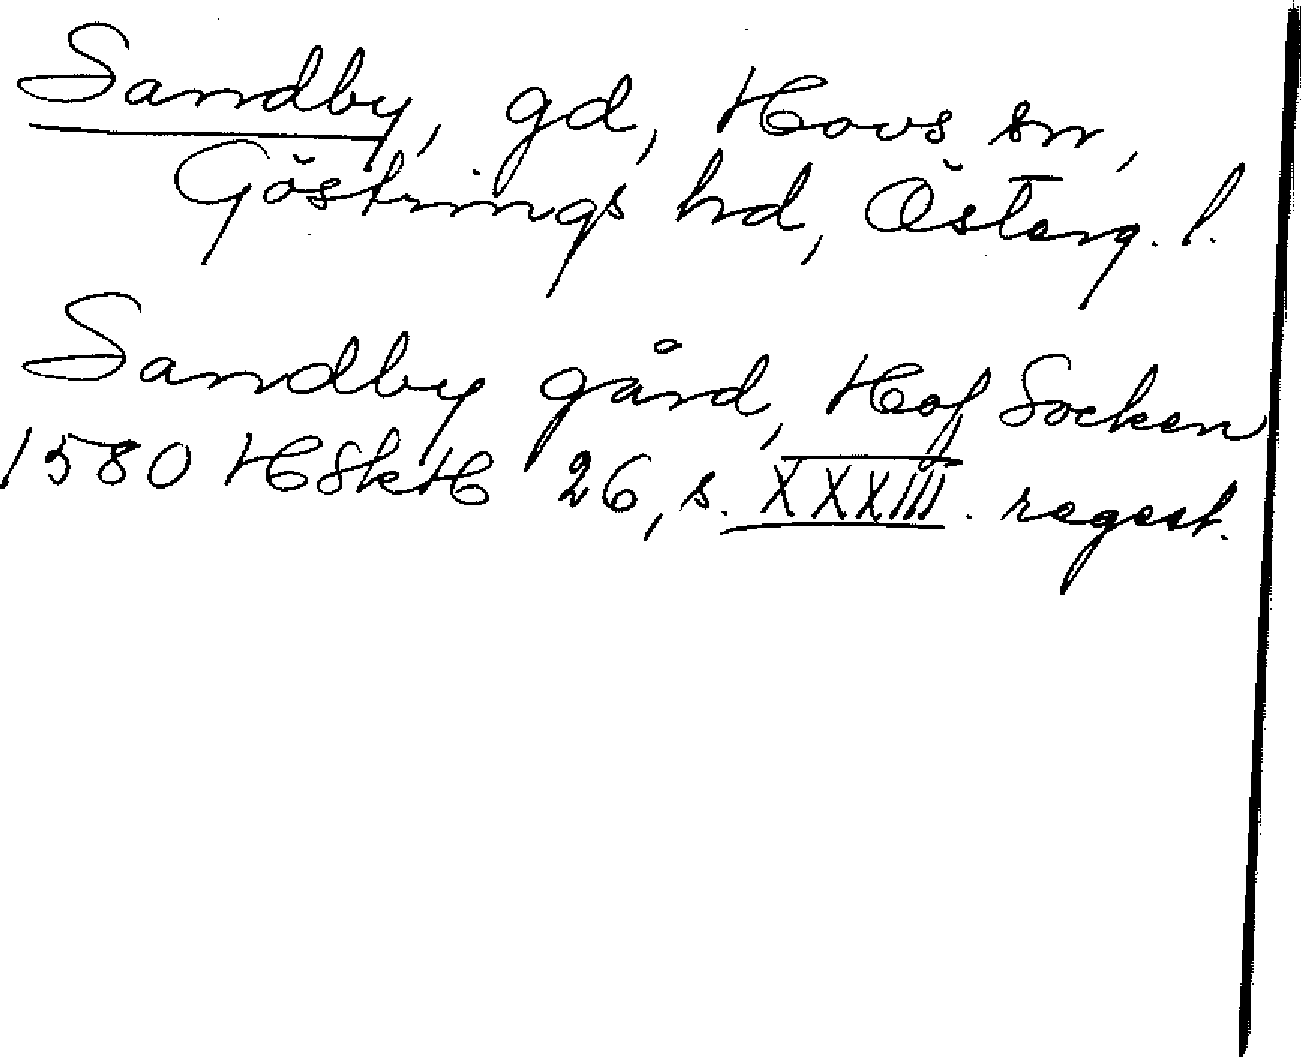 Sandby, gd, Hovs sn,
Göstrings hd, Österg. l.
Sandby gård, Hof Socken
1580 HSkH 26, s. XXXIII. regest.